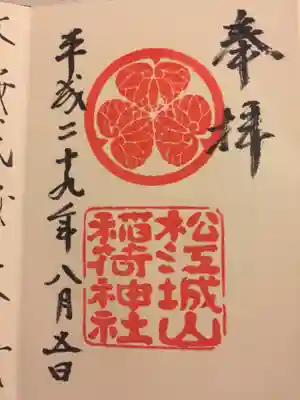 奉拝
松江城山
稲荷神社
平成二十九年八月五日